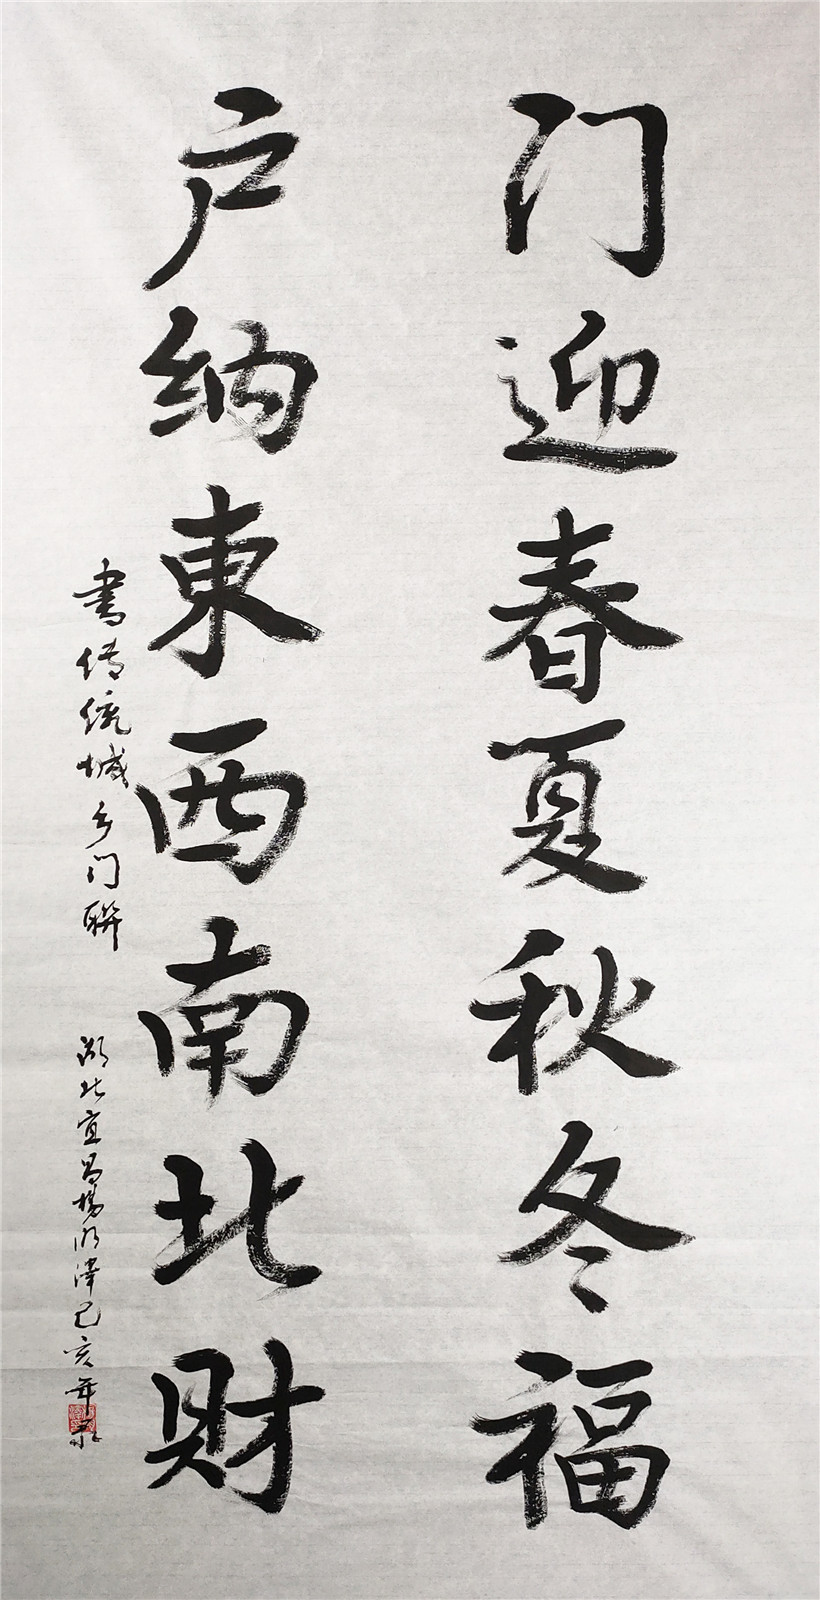 门迎春夏秋冬福
户纳東西南北财
書传统城乡门聯
湖北宜昌楊澤己亥年